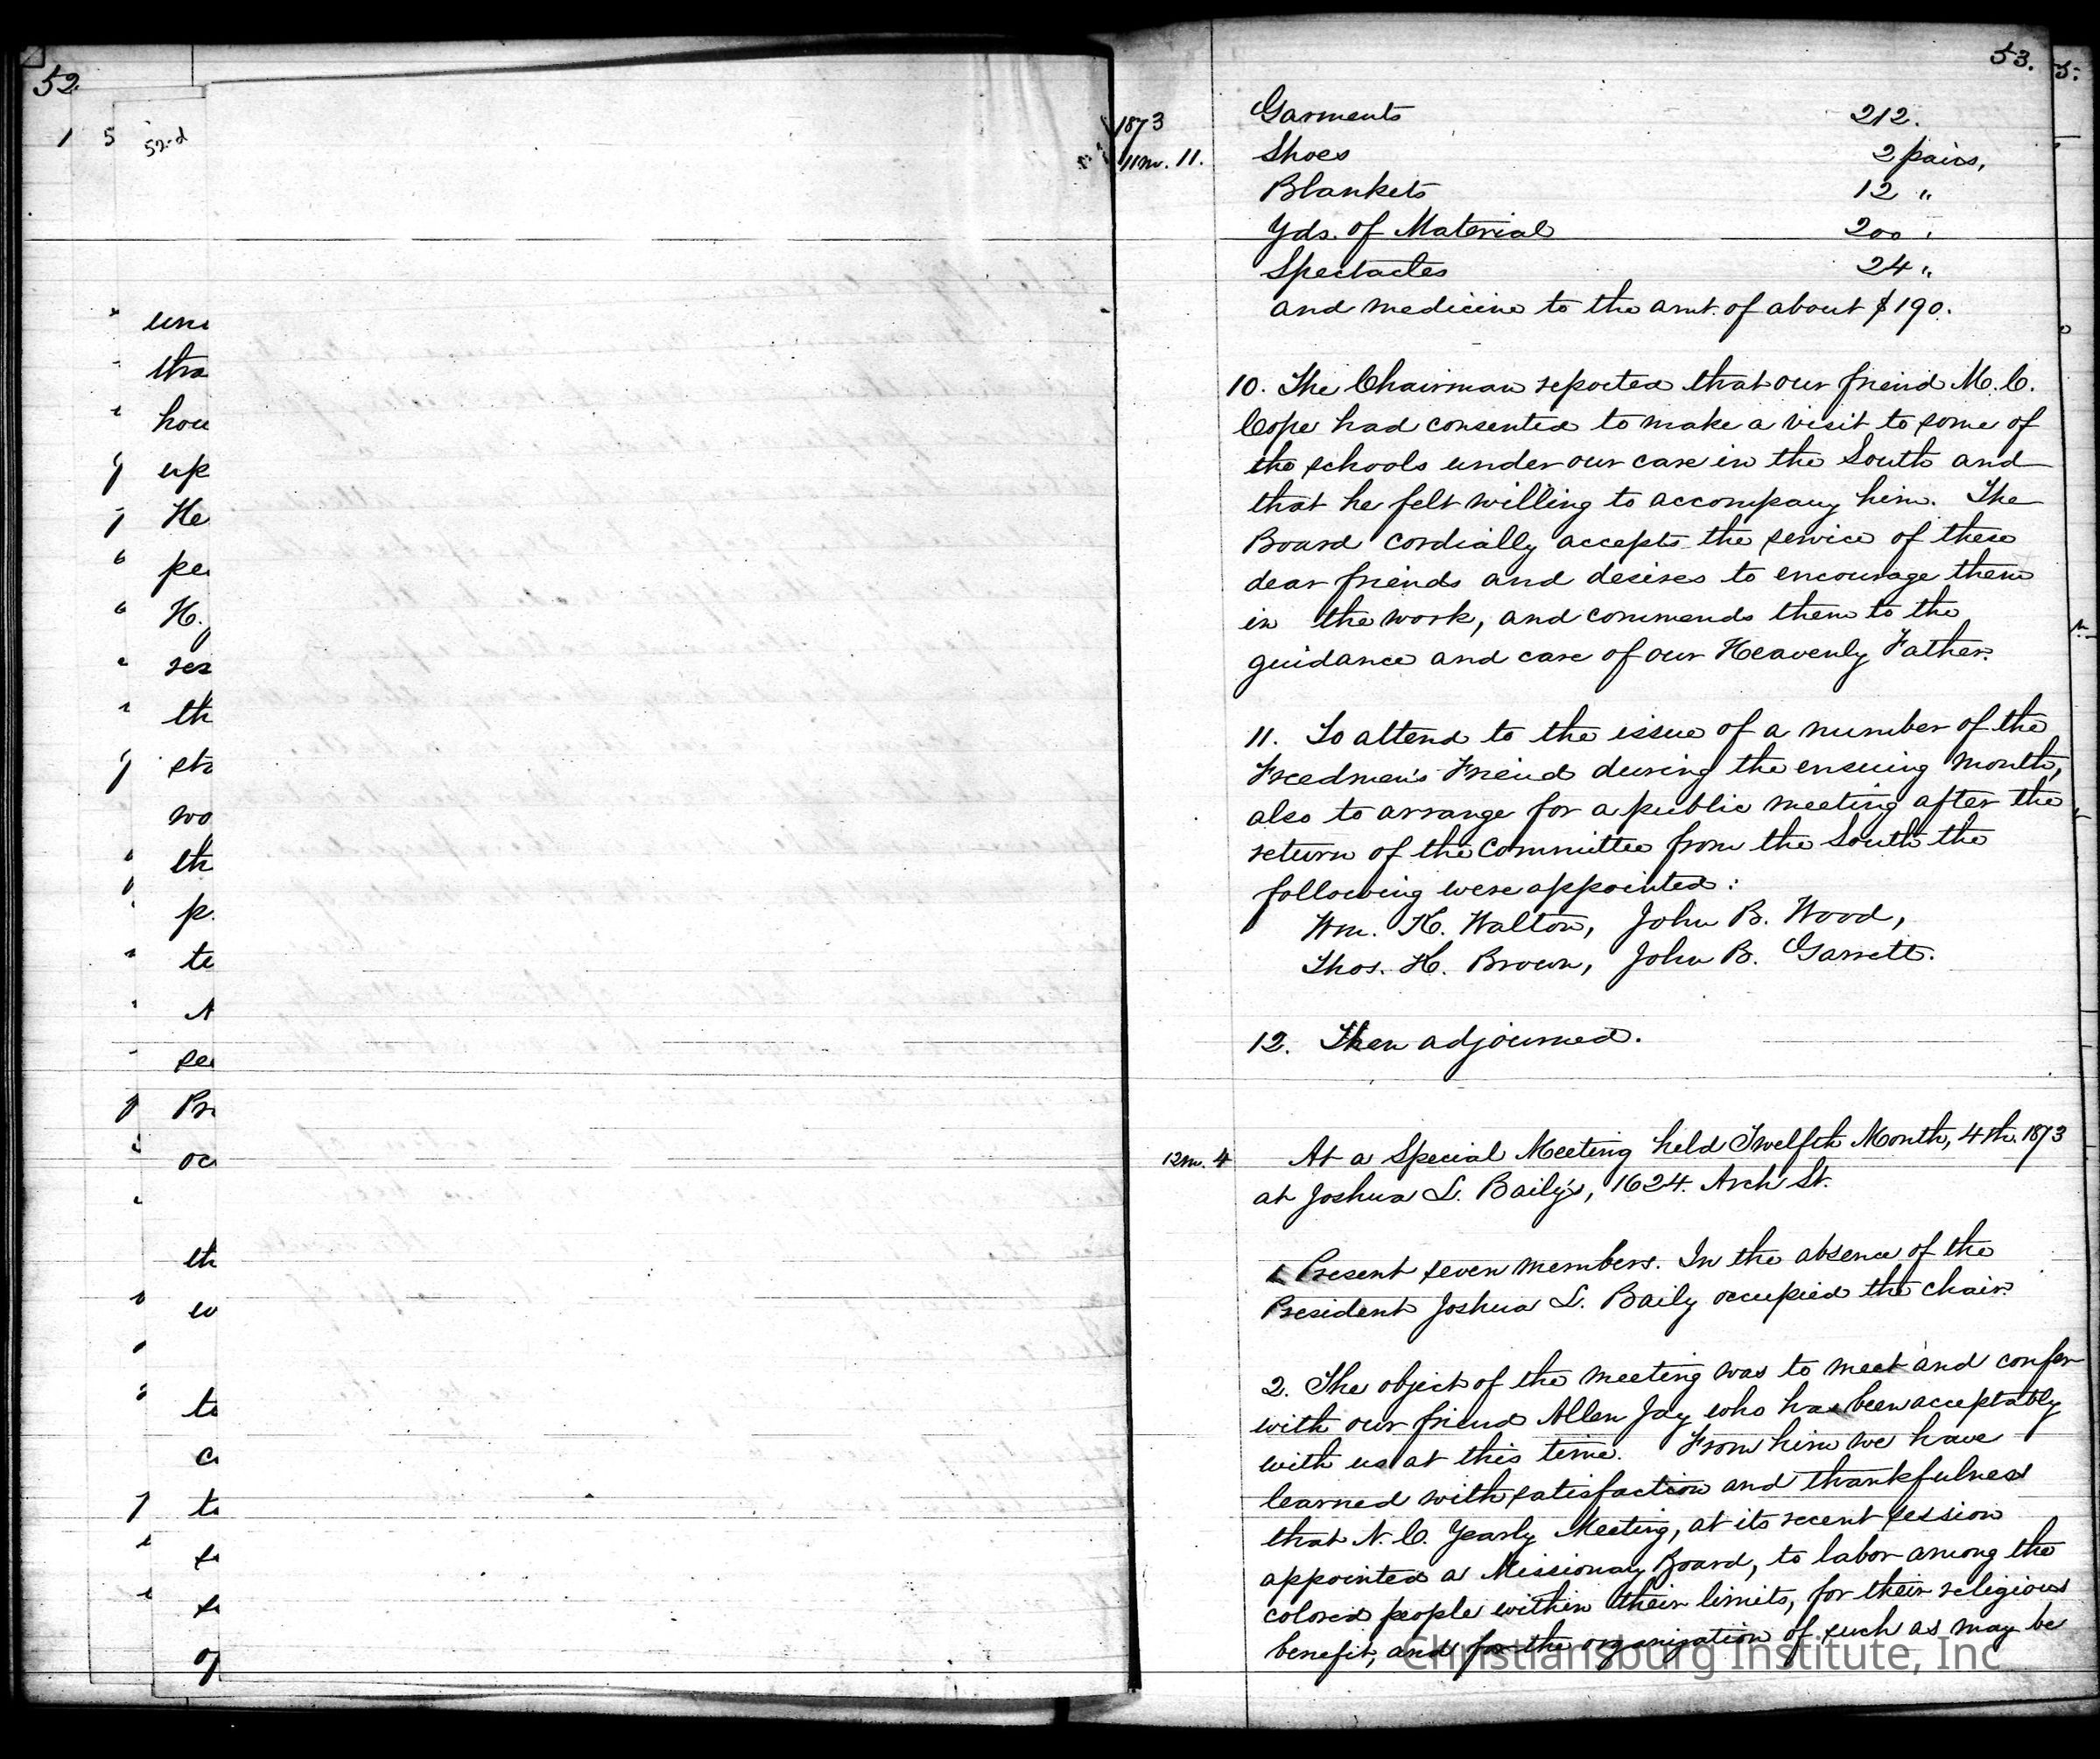 52.
52-d
uni
tha
hou
up
He
pe
H.
res
th
str
wo
th
p
te
A
se
Pr
oc
th
w
to
c
to
s
s
of
53.
1873
11m. 11.
Garments 212.
Shoes 2 pairs,
Blankets 12 "
Yds. of Material 200 "
Spectacles 24 "
and medicine to the amt. of about $190.
10. The Chairman reported that our friend M. C.
Cope had consented to make a visit to some of
the schools under our care in the South and
that he felt willing to accompany him. The
Board cordially accepts the service of these
dear friends and desires to encourage them
in the work, and commends them to the
guidance and care of our Heavenly Father.
11. To attend to the issue of a number of the
Freedmen's Friend during the ensuing month,
also to arrange for a public meeting after the
return of the Committee from the South the
following were appointed:
Wm. H. Walton, John B. Wood,
Thos. H. Brown, John B. Garrett.
12. Then adjourned.
12m. 4 At a Special Meeting held Twelfth Month, 4th. 1873
at Joshua L. Baily's, 1624. Arch St.
1. Present seven members. In the absence of the
President Joshua L. Baily occupied the chair.
2. The object of the meeting was to meet and confer
with our friend Allen Jay who has been acceptably
with us at this time. From him we have
learned with satisfaction and thankfulness
that N. C. Yearly Meeting, at its recent session
appointed a Missionary Board, to labor among the
colored people within their limits, for their religious
benefit, and for the organization of such as may be
Christiansburg Institute, Inc